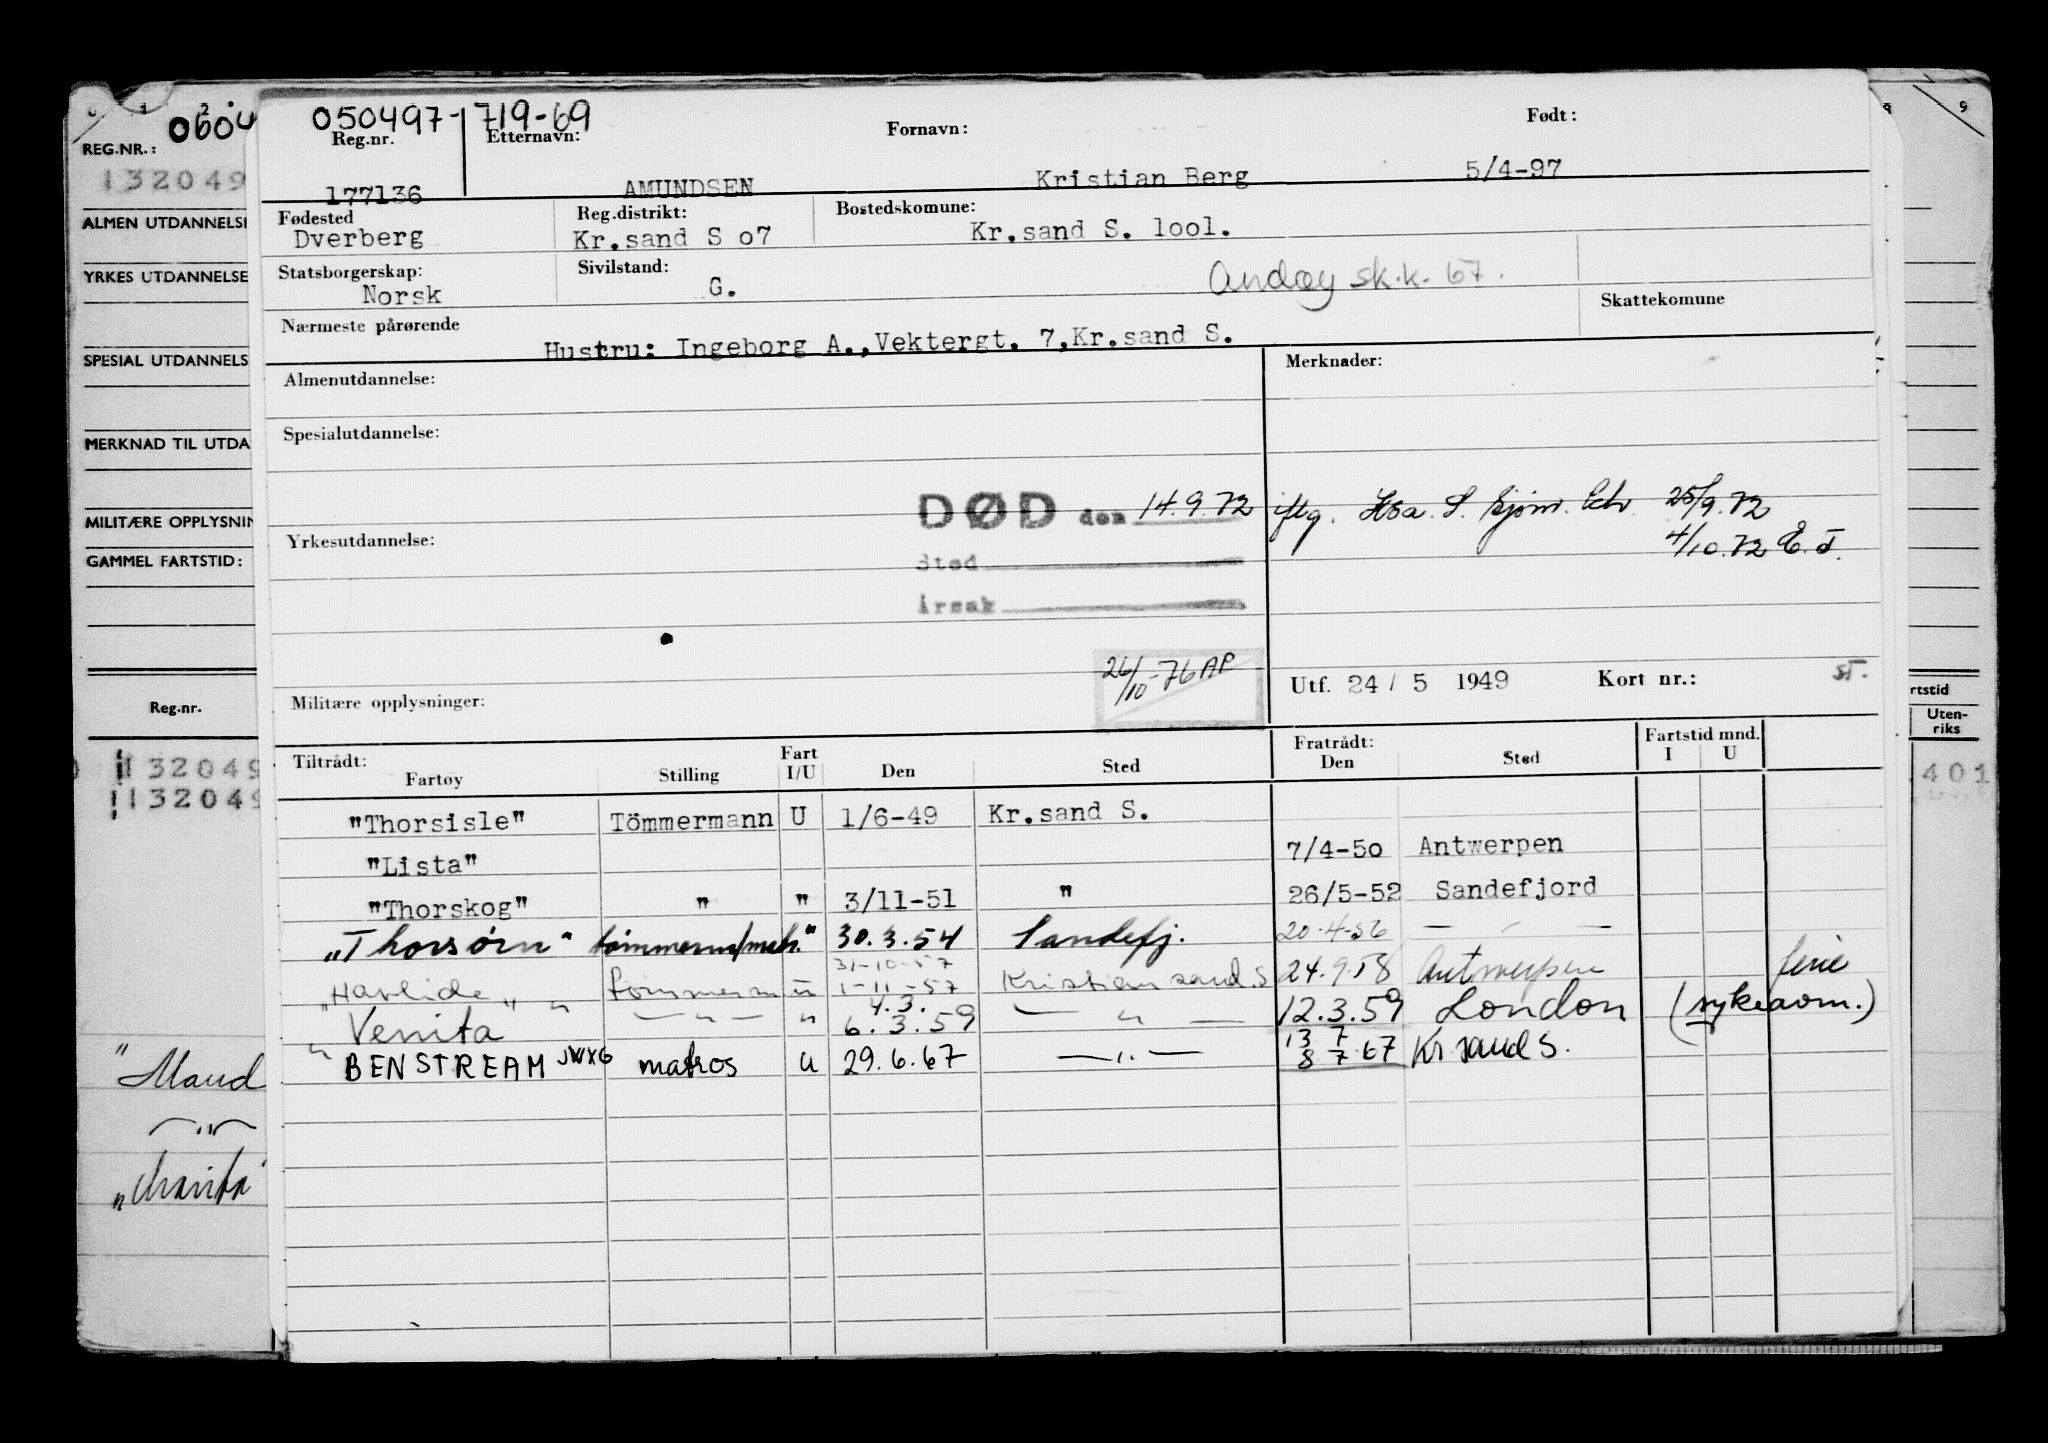 0 1 2 9
0604
REG.NR.:
132049
ALMEN UTDANNELSE
YRKES UTDANNELSE
SPESIAL UTDANNELS
MERKNAD TIL UTDA
MILITÆRE OPPLYSNIN
GAMMEL FARTSTID:
Reg.nr.
132049
132049
"Maud
—"—
rtstid
Uten-
riks
401
050497-1719-69
Reg.nr. Etternavn: Fornavn: Født:
177136 AMUNDSEN Kristian Berg 5/4-97
Fødested Reg.distrikt: Bostedskomune:
Dverberg Kr.sand S o7 Kr.sand S. 1001.
Statsborgerskap: Sivilstand:
Norsk G. Andøy sk.k. 67.
Skattekomune
Nærmeste pårørende
Hustru: Ingeborg A.,Vektergt. 7,Kr.sand S.
Almenutdannelse: Merknader:
Spesialutdannelse:
DØD den 14.9.72 iflg. Kr.sa. S. Sjøm. 25/9.72
Yrkesutdannelse: 4/10.72 E.T.
Sted
Årsak
26/10-76 AP
Militære opplysninger: Utf. 24 / 5 1949 Kort nr.: ST.
Tiltrådt: Fratrådt: Fartstid mnd.
Fartøy Stilling Fart I/U Den Sted Den Sted I U
"Thorsisle" Tömmermann U 1/6-49 Kr.sand S.
"Lista" 7/4-50 Antwerpen
"Thorskog" " " 3/11-51 " 26/5-52 Sandefjord
"Thorsørn" tömmerm/matr. " 30.3.54 Sandefj. 20.4.56 — " —
31-10-57
"Havlide" tömmerm u 1-11-57 Kristiansand S 24.9.58 Antwerpen ferie
4.3.
" Venita " — " — " 6.3.59 — " — 12.3.59 London (sykeavm.)
13 7
" BENSTREAM JWXG matros u 29.6.67 — " — 8 7.67 Kr sand S.